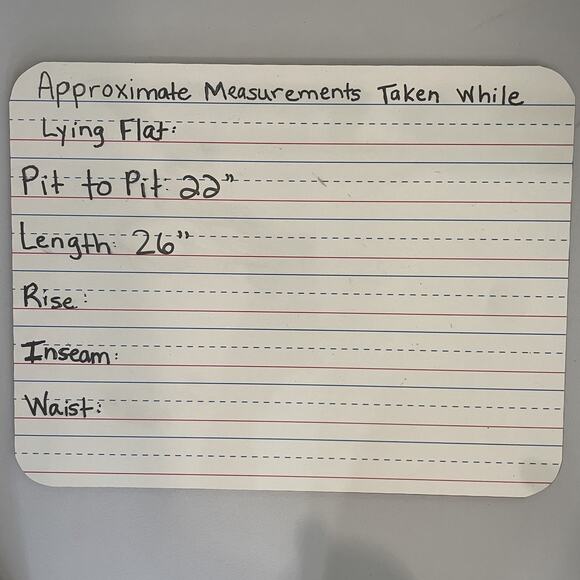 Approximate Measurements Taken While
Lying Flat:
Pit to Pit: 22"
Length: 26"
Rise:
Inseam:
Waist: